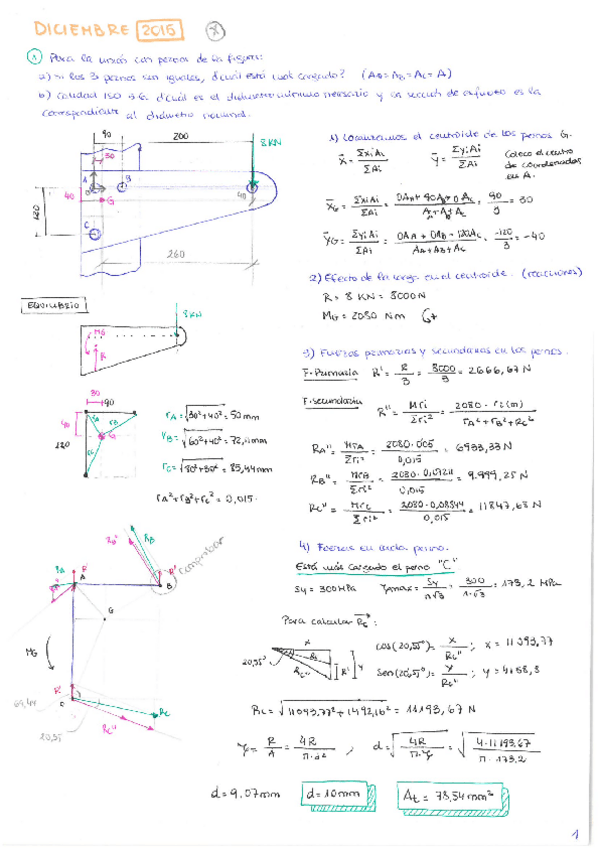 DICIEMBRE 2015
① Para la unión con pernos de la figura:
a) si los 3 pernos son iguales, ¿cuál está más cargado? (AA=AB=AC=A)
b) Calidad ISO 4.6. ¿cuál es el diámetro mínimo necesario y la sección de esfuerzo es la
correspondiente al diámetro nominal.
90
200
8 KN
30
A
B
G
40
40
120
C
260
1) Localizamos el centroide de los pernos G.
X̄ = Σxi Ai / ΣAi
Ȳ = Σyi Ai / ΣAi
Coloco el centro
de coordenadas
en A.
X̄G = ΣxiAi / ΣAi = 0AA + 90AB + 0AC / AA+AB+AC = 90 / 3 = 30
ȲG = ΣyiAi / ΣAi = 0AA + 0AB - 120AC / AA+AB+AC = -120 / 3 = -40
2) Efecto de la carga en el centroide. (reacciones)
R = 8 KN = 8000N
MG = 2080 Nm
EQUILIBRIO
8KN
MG
R
3) Fuerzas primarias y secundarias en los pernos.
F. Primaria R' = R / 3 = 8000 / 3 = 2666,67 N
F. secundaria R'' = M ri / Σri² = 2080 · ri (m) / rA² + rB² + rC²
30
90
40
120
rA
rB
rC
G
rA = √30²+40² = 50 mm
rB = √60²+40² = 72,11mm
rC = √30²+80² = 85,44mm
rA²+rB²+rC² = 0,015.
RA'' = MrA / Σri² = 2080·0,05 / 0,015 = 6933,33 N
RB'' = MrB / Σri² = 2080·0,07211 / 0,015 = 9.999,25 N
RC'' = MrC / Σri² = 2080·0,08544 / 0,015 = 11847,68 N
4) Fuerzas en cada perno.
Está más cargado el perno "C."
Sy = 300MPa
τmax = Sy / n√3 = 300 / 1·√3 = 173,2 MPa
RA
R'
A
RB''
RB
R'
B
comprobar
G
MG
R'
69,44
C
RC
RC''
20,55
Para calcular RC:
X
20,55°
RC
RC''
R'
Y
cos(20,55°) = X / RC'' ; x = 11093,77
Sen(20,55°) = Y / RC'' ; y = 4158,8
RC = √11093,77² + 1492,16² = 11193,67 N
τ = R / A = 4R / π·d² , d = √4R / π·τ = √4·11193,67 / π·173,2
d = 9.07mm
d = 10mm
At = 78,54 mm²
1